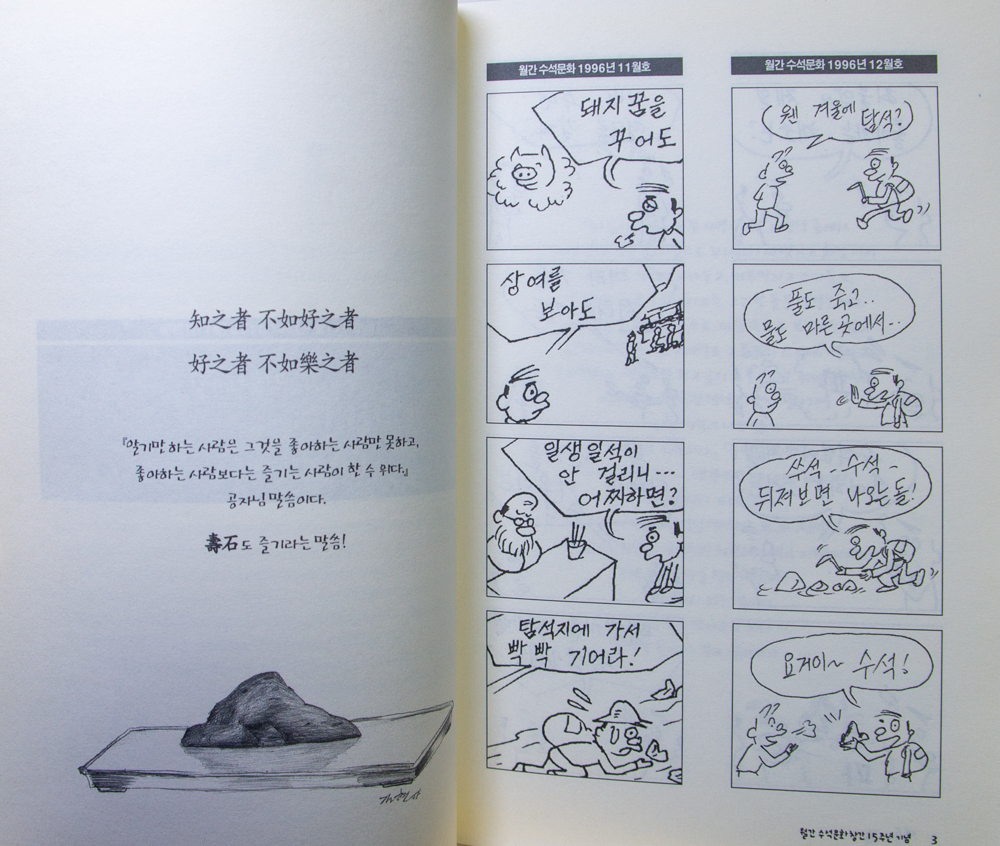 知之者 不如好之者
好之者 不如樂之者
『알기만 하는 사람은 그것을 좋아하는 사람만 못하고,
좋아하는 사람보다는 즐기는 사람이 한 수 위다』
공자님 말씀이다.
壽石도 즐기라는 말씀!
월간 수석문화 1996년 11월호
돼지 꿈을
꾸어도
상여를
보아도
일생일석이
안 걸리니···
어찌하면?
탐석지에 가서
빡 빡 기어라!
월간 수석문화 1996년 12월호
웬 겨울에
탐석?
풀도 죽고..
물도 마른 곳에서..
쑤석- 수석-
뒤져보면 나오는 돌!
요거이~ 수석!
월간 수석문화 창간 15주년 기념 3